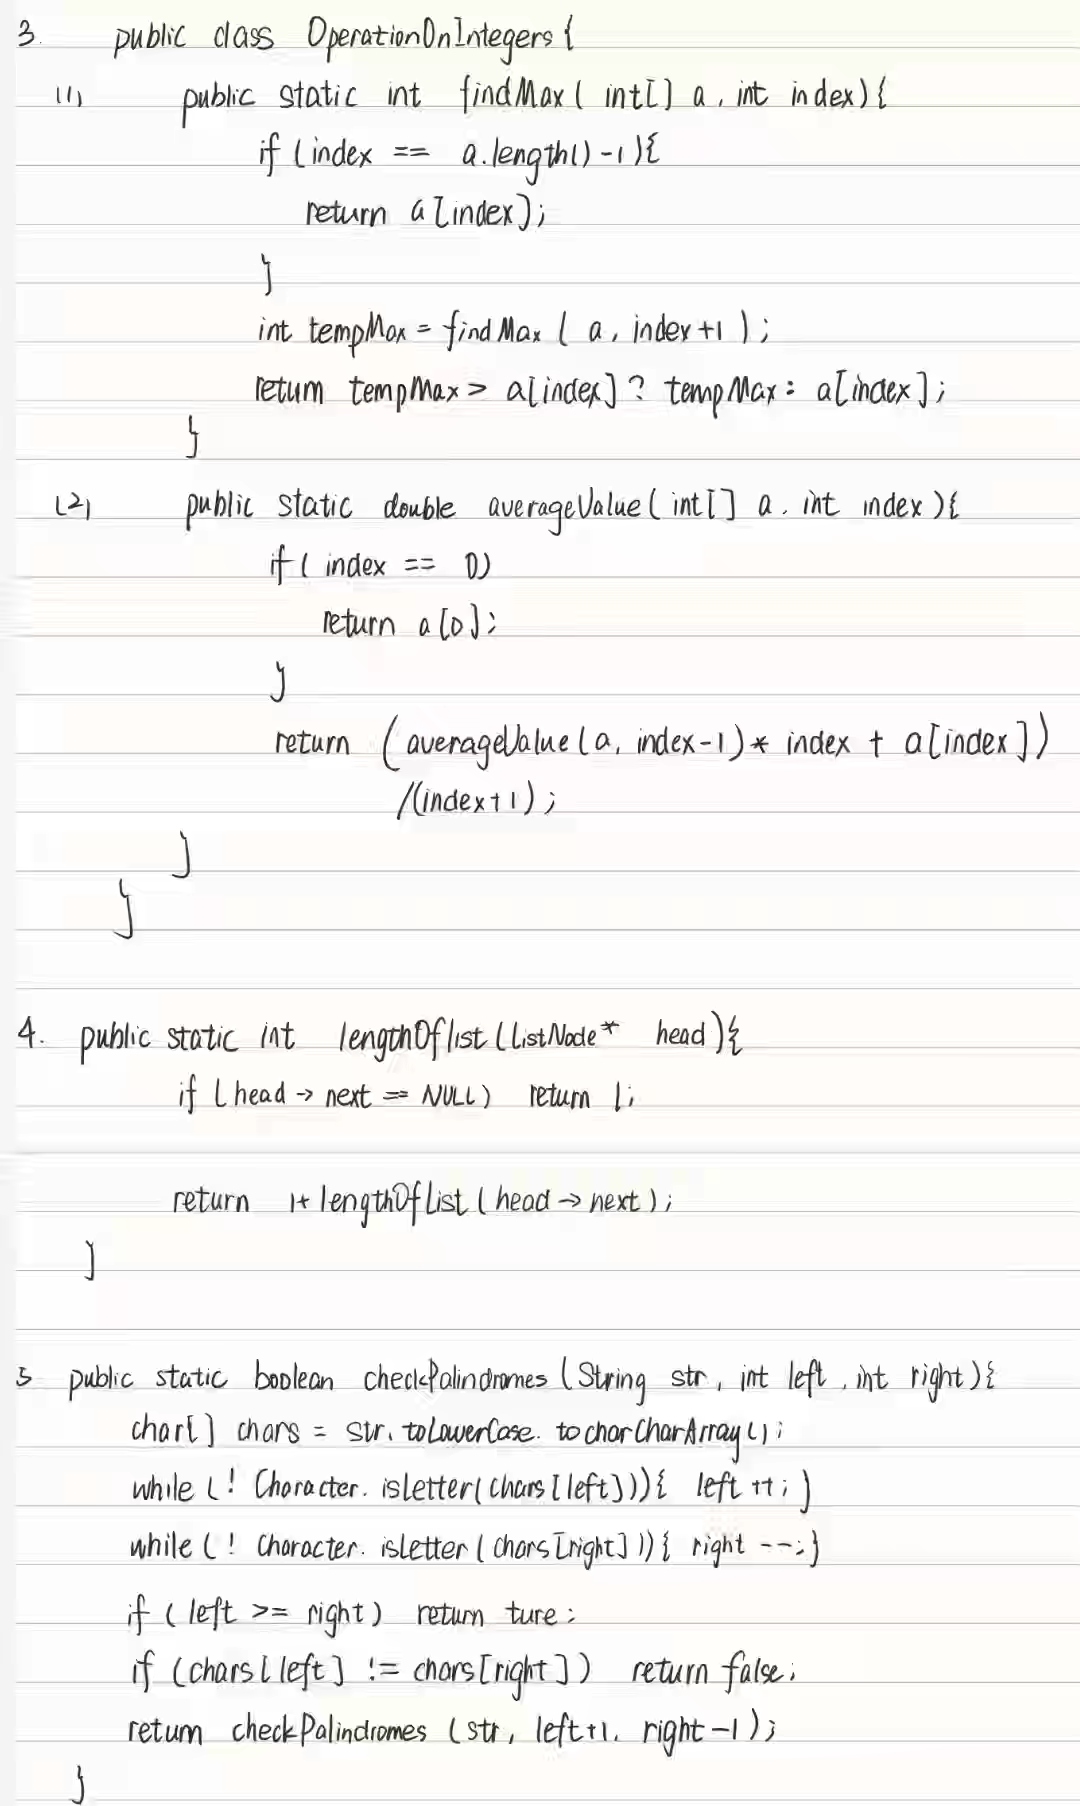 3. public class OperationOnIntegers {
(1) public static int findMax ( int[] a, int index) {
if (index == a.length() -1 ){
return a[index];
}
int tempMax = findMax ( a, index+1 );
return tempMax > a[index] ? tempMax : a[index];
}
(2) public static double averageValue ( int[] a, int index ){
if ( index == 0)
return a[0];
}
return (averageValue (a, index-1) * index + a[index])
/(index+1);
}
}
4. public static int lengthOflist (ListNode* head){
if (head → next == NULL) return 1;
return 1+ lengthOfList (head → next);
}
5 public static boolean checkPalindromes (String str, int left, int right){
char[] chars = str.toLowerCase.tocharCharArray();
while (! Character.isletter(chars[left])){ left ++; }
while (! Character.isletter (chars[right])){ right --; }
if (left >= right) return ture;
if (chars[left] != chars[right]) return false;
return checkPalindromes (str, left+1, right-1);
}